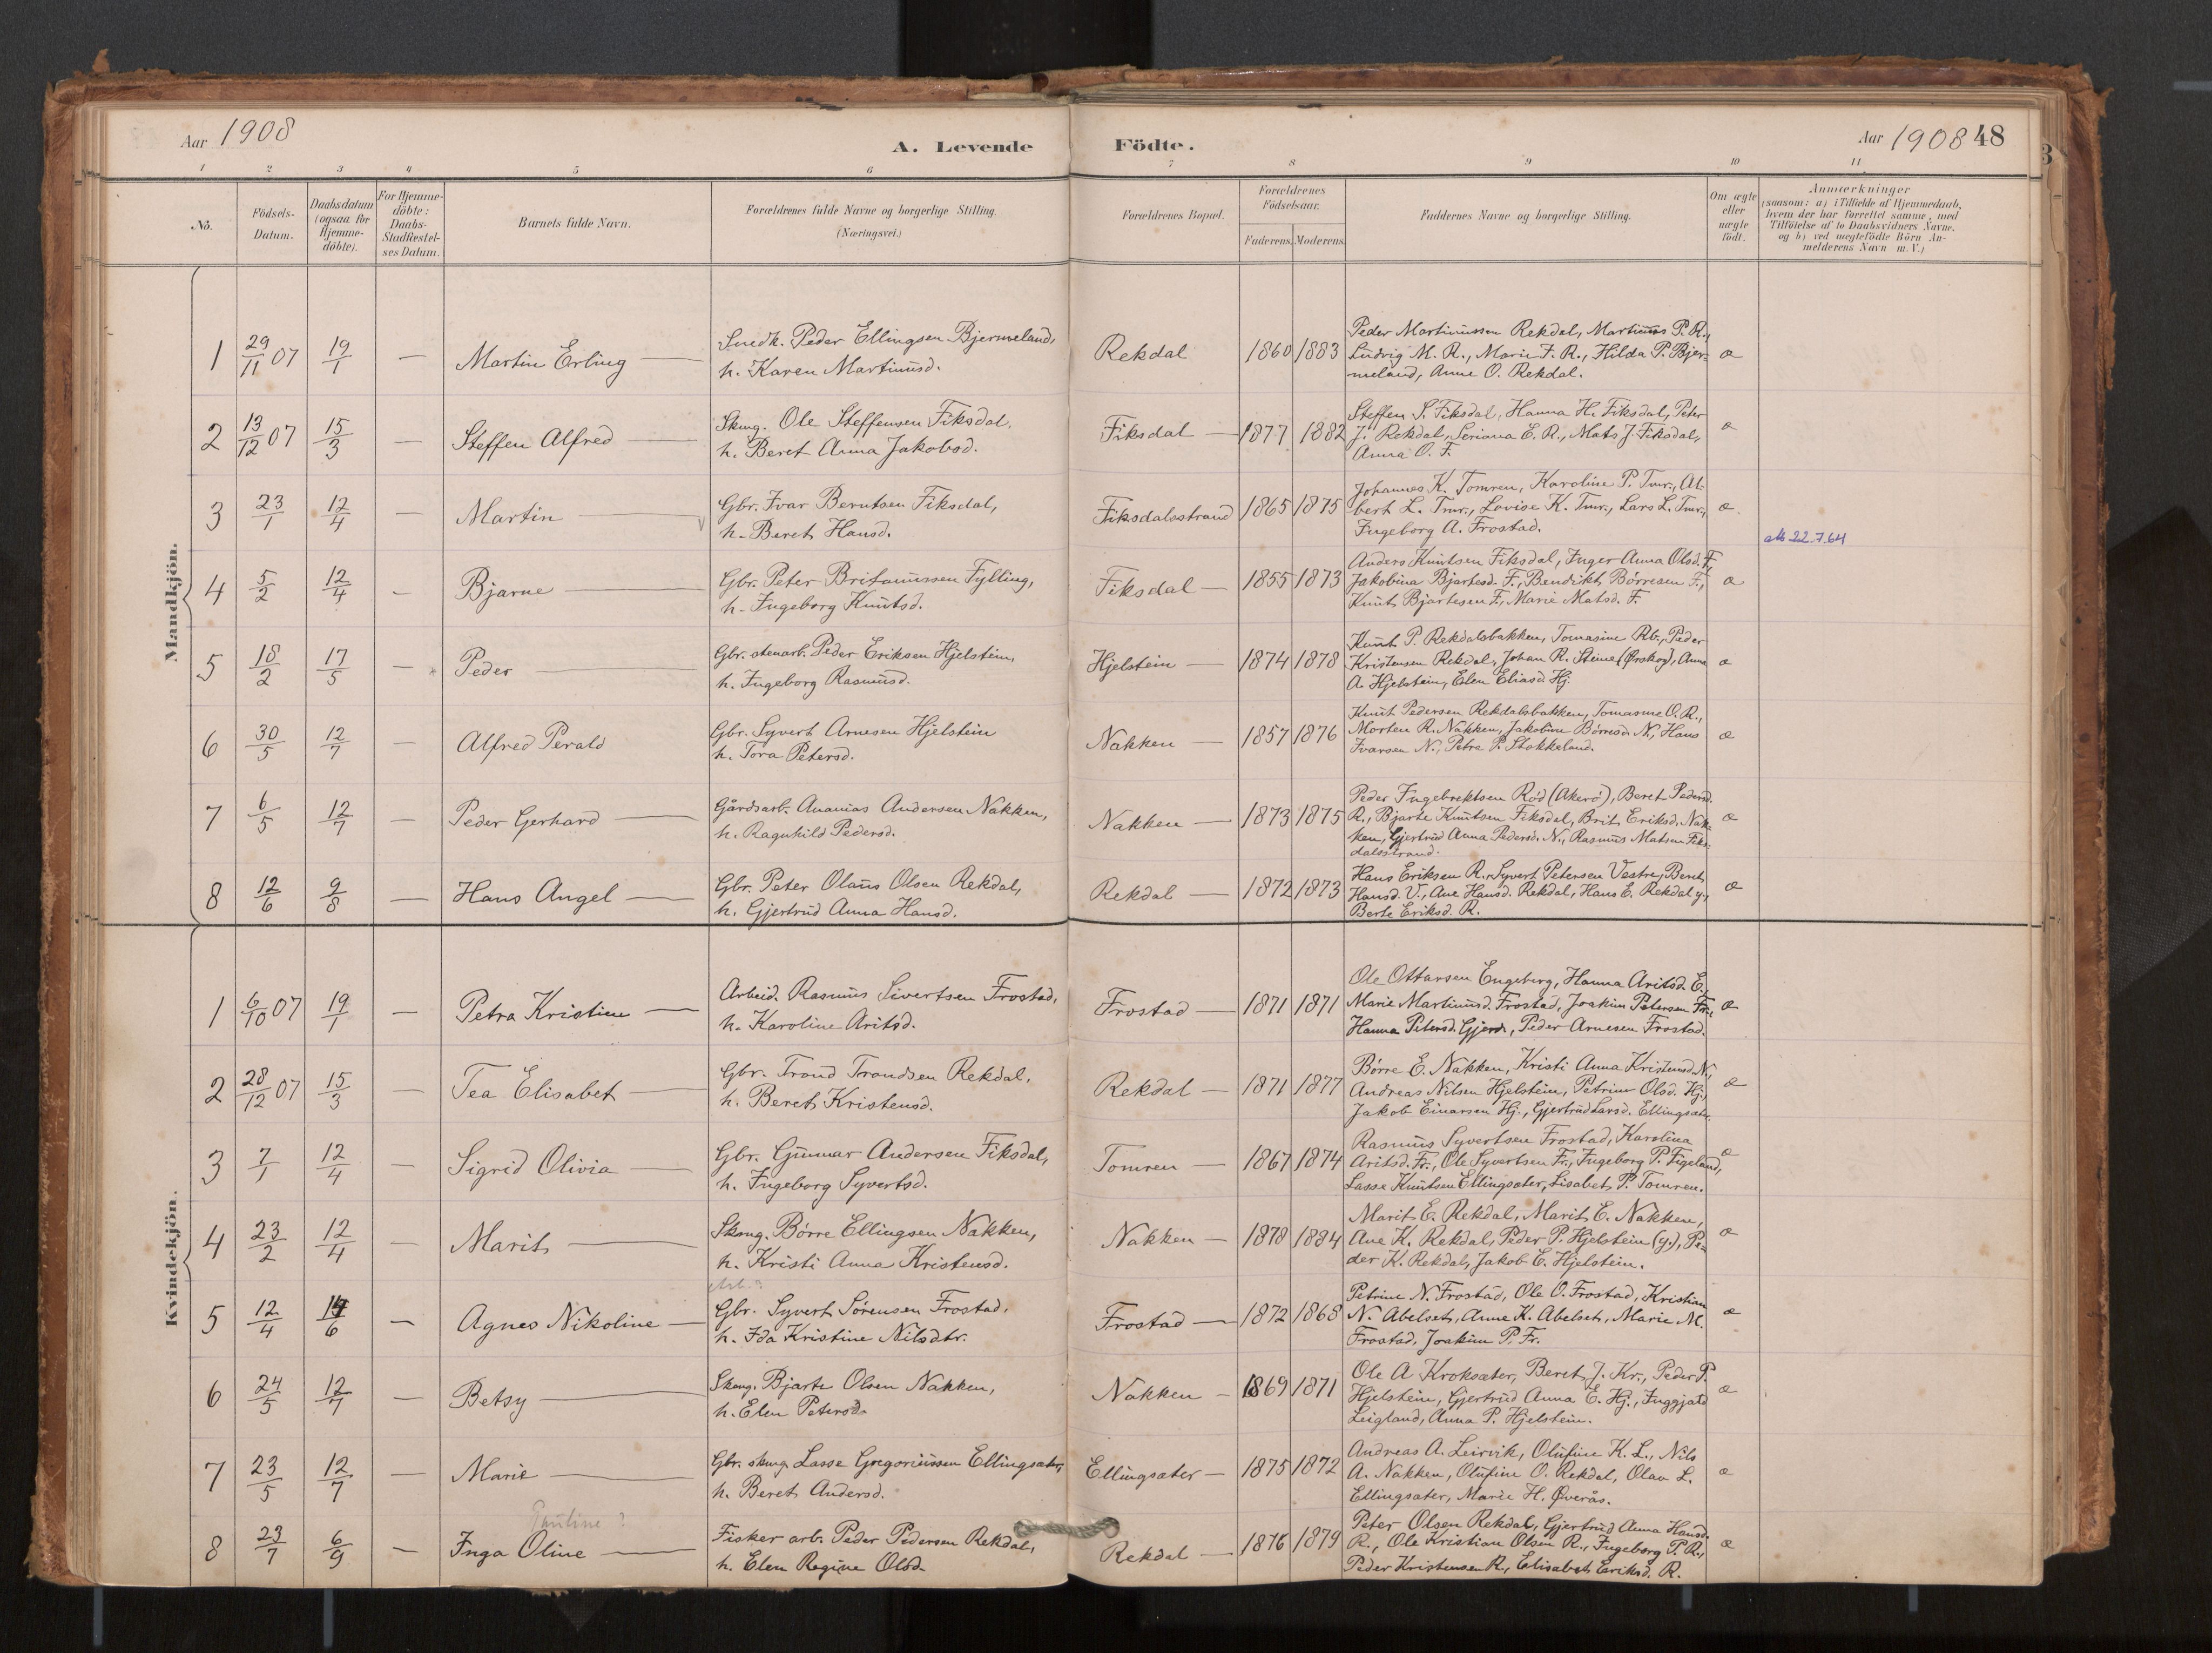 Aar 1908
A. Levende Födte.
Aar 1908 48
3
1 2 3 4 5 6 7 8 9 10 11
No.
Födsels-
Datum.
Daabsdatum
(ogsaa for
Hjemme-
döbte).
For Hjemme-
döbte:
Daabs-
Stadfæstel-
ses Datum.
Barnets fulde Navn.
Forældrenes fulde Navne og borgerlige Stilling.
(Næringsvei.)
Forældrenes Bopæl.
Forældrenes
Födselsaar.
Faderens. Moderens.
Faddernes Navne og borgerlige Stilling.
Om ægte
eller
uægte
födt.
Anmærkninger
(saasom: a) i Tilfælde af Hjemmedaab,
hvem der har forrettet samme, med
Tilföielse af to Daabsvidners Navne.
og b) ved uægtefödte Börn An-
melderens Navn m.V.)
Mandkjön.
1 29/11 07 19/1 — Martin Erling —
Snedk. Peder Ellingsen Bjermeland,
h. Karen Martinusd.
Rekdal 1860 1883
Peder Martinussen Rekdal, Martinus P. R.,
Ludvig M. R., Marie F. R., Hilda P. Bjer-
meland, Anne O. Rekdal.
æ
2 13/12 07 15/3 — Steffen Alfred —
Skmg. Ole Steffensen Fiksdal,
h. Beret Anna Jakobsd.
Fiksdal — 1877 1882
Steffen S. Fiksdal, Hanna H. Fiksdal, Peter
J. Rekdal, Seriana E. R., Mats J. Fiksdal,
Anna O. F.
æ
3 23/1 12/4 — Martin —
Gbr. Ivar Berntsen Fiksdal,
h. Beret Hansd.
Fiksdalsstrand 1865 1875
Johannes K. Tomren, Karoline P. Tmr., Al-
bert L. Tmr., Lovise K. Tmr., Lars L. Tmr.,
Ingeborg A. Frostad.
æ
att 22.7.64
4 5/2 12/4 — Bjarne —
Gbr. Peter Brifanussen Fylling,
h. Ingeborg Knutsd.
Fiksdal — 1855 1873
Anders Knutsen Fiksdal, Inger Anna Olsd. F.,
Jakobina Bjartesd. F., Bendikt Børresen F.,
Knut Bjartesen F., Marie Matsd. F.
æ
5 18/2 17/5 — Peder —
Gbr. stenarb. Peder Eriksen Hjelstein,
h. Ingeborg Rasmusd.
Hjelstein — 1874 1878
Knut P. Rekdalsbakken, Tomasine Rb., Peder
Kristensen Rekdal, Johan R. Steine (Ørskog), Anna
A. Hjelstein, Elen Eliasd. Hj.
æ
6 30/5 12/7 — Alfred Perald
Gbr. Syvert Arnesen Hjelstein
h. Tora Petersd.
Nakken — 1857 1876
Knut Pedersen Rekdalsbakken, Tomasine O. R.,
Morten R. Nakken, Jakobine Børresd. N., Hans
Ivarsen N., Petra P. Stokkeland.
æ
7 6/5 12/7 — Peder Gerhard —
Gårdsarb. Ananias Andersen Nakken,
h. Ragnhild Pedersd.
Nakken — 1873 1875
Peder Ingebrektsen Rød (Akerø), Beret Pedersd.
R., Bjarte Knutsen Fiksdal, Brit Eriksd. Nak-
ken, Gjertrud Anna Pedersd. N., Rasmus Matsen Fiks-
dalsstrand.
æ
8 12/6 9/8 — Hans Angel —
Gbr. Peter Olaus Olsen Rekdal,
h. Gjertrud Anna Hansd.
Rekdal — 1872 1873
Hans Eriksen R., Syvert Petersen Vestre, Beret
Hansd. V., Ane Hansd. Rekdal, Hans E. Rekdal y.,
Berte Eriksd. R.
æ
Kvindekjön.
1 6/10 07 19/1 — Petra Kristine —
Arbeid. Rasmus Sivertsen Frostad,
h. Karoline Aritsd.
Frostad — 1871 1871
Ole Ottarsen Engeberg, Hanna Aritsd. E.,
Marie Martinusd. Frostad, Joakim Petersen Fr.,
Hanna Petersd. Gjerde, Peder Arnesen Frostad.
æ
2 28/12 07 15/3 — Tea Elisabet —
Gbr. Trond Trondsen Rekdal,
h. Beret Kristensd.
Rekdal — 1871 1877
Børre E. Nakken, Kristi Anna Kristensd. N.,
Andreas Nilsen Hjelstein, Petrine Olsd. Hj.,
Jakob Einarsen Hj., Gjertrud Larsd. Ellingsæter.
æ
3 7/1 12/4 — Sigrid Olivia —
Gbr. Gunnar Andersen Fiksdal,
h. Ingeborg Syvertsd.
Tomren — 1867 1874
Rasmus Syvertsen Frostad, Karolina
Aritsd. Fr., Ole Syvertsen Fr., Ingeborg P. Figeland,
Lasse Knutsen Ellingsæter, Lisabet P. Tomren.
æ
4 23/2 12/4 — Marit —
Skmg. Børre Ellingsen Nakken,
h. Kristi Anna Kristensd.
Nakken — 1878 1884
Marit E. Rekdal, Marit E. Nakken,
Ane K. Rekdal, Peder P. Hjelstein (y.), Pe-
der K. Rekdal, Jakob E. Hjelstein.
æ
5 12/4 14/6 — Agnes Nikoline —
Gbr. Syvert Sørensen Frostad,
h. Ida Kristine Nilsdtr.
Frostad — 1872 1868
Petrine N. Frostad, Ole O. Frostad, Kristian
N. Abelset, Anne K. Abelset, Marie M.
Frostad, Joakim P. Fr.
æ
6 24/5 12/7 — Betsy —
Skmg. Bjarte Olsen Nakken,
h. Elen Petersd.
Nakken — 1869 1871
Ole A. Kroksæter, Beret J. Kr., Peder P.
Hjelstein, Gjertrud Anna E. Hj., Inggjard
Leigland, Anna P. Hjelstein.
æ
7 23/5 12/7 — Marie —
Gbr. skmg. Lasse Gregoriussen Ellingsæter,
h. Beret Andersd.
Ellingsæter — 1875 1872
Andreas A. Leirvik, Olufine K. L., Nils
A. Nakken, Olufine O. Rekdal, Olav L.
Ellingsæter, Marie H. Øverås.
æ
Pauline ?
8 23/7 6/9 — Inga Oline —
Fisker arb. Peder Pedersen Rekdal,
h. Elen Regine Olsd.
Rekdal — 1876 1879
Peter Olsen Rekdal, Gjertrud Anna Hansd.
R., Ole Kristian Olsen R., Ingeborg P. R.,
Peder Kristensen R., Elisabet Eriksd. R.
æ